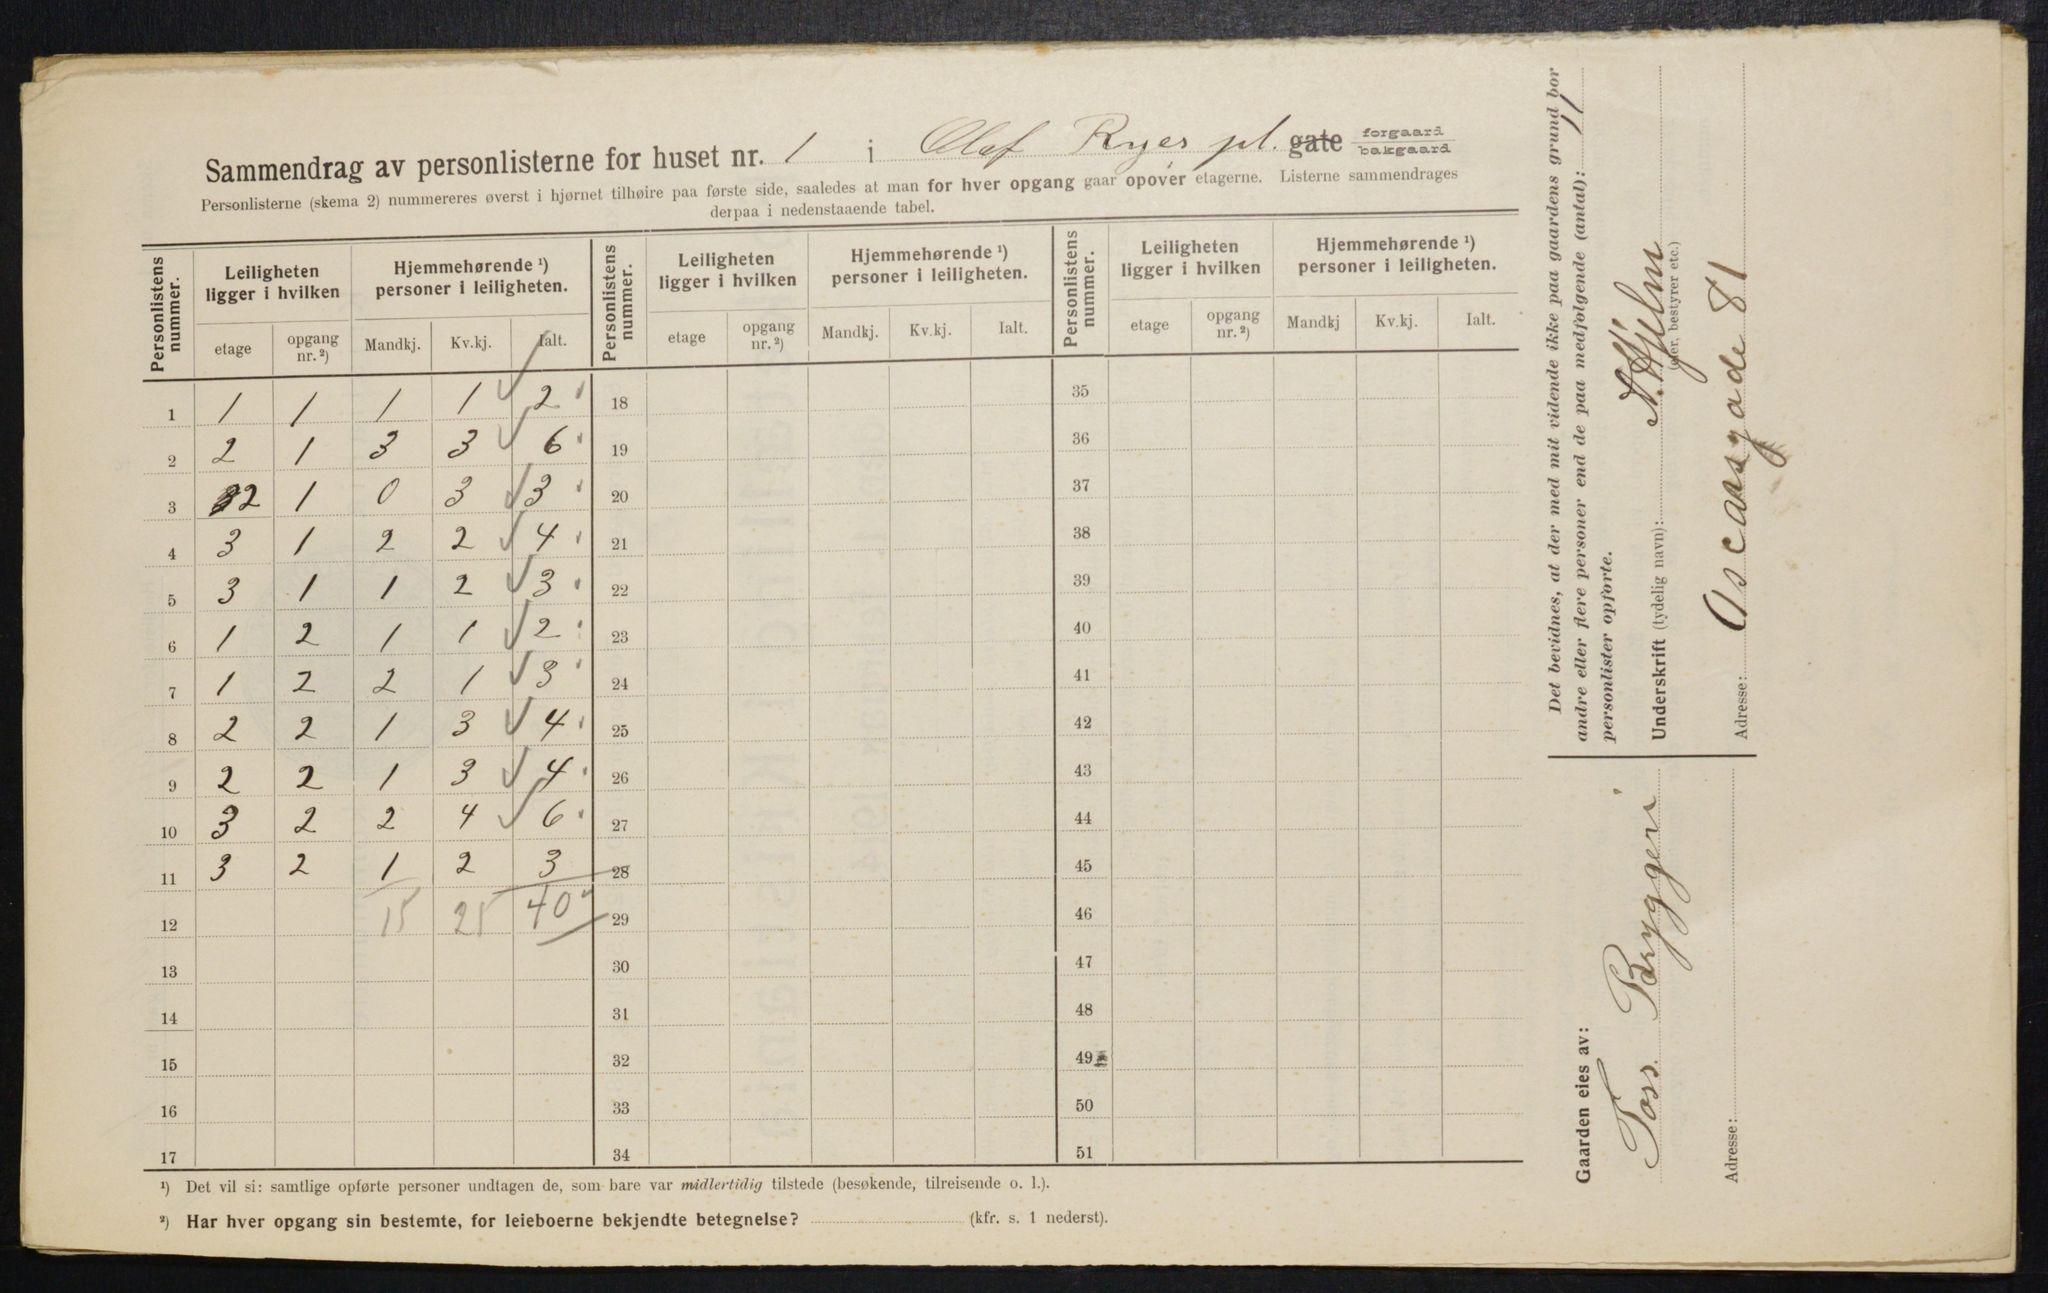 Sammendrag av personlisterne for huset nr. 1 i Olaf Ryes pl. gate forgaard bakgaard
Personlisterne (skema 2) nummereres øverst i hjørnet tilhøire paa første side, saaledes at man for hver opgang gaar opover etagerne. Listerne sammendrages
derpaa i nedenstaaende tabel.
Personlistens nummer. Leiligheten ligger i hvilken Hjemmehørende ¹) personer i leiligheten. Personlistens nummer. Leiligheten ligger i hvilken Hjemmehørende ¹) personer i leiligheten. Personlistens nummer. Leiligheten ligger i hvilken Hjemmehørende ¹) personer i leiligheten.
etage opgang nr. ²) Mandkj. Kv.kj. Ialt. etage opgang nr. ²) Mandkj. Kv.kj. Ialt. etage opgang nr. ²) Mandkj Kv.kj. Ialt.
1 1 1 1 1 2 18 35
2 2 1 3 3 6 19 36
3 2 1 0 3 3 20 37
4 3 1 2 2 4 21 38
5 3 1 1 2 3 22 39
6 1 2 1 1 2 23 40
7 1 2 2 1 3 24 41
8 2 2 1 3 4 25 42
9 2 2 1 3 4 26 43
10 3 2 2 4 6 27 44
11 3 2 1 2 3 28 45
12 15 25 40 29 46
13 30 47
14 31 48
15 32 49
16 33 50
17 34 51
¹) Det vil si: samtlige opførte personer undtagen de, som bare var midlertidig tilstede (besøkende, tilreisende o. l.).
²) Har hver opgang sin bestemte, for leieboerne bekjendte betegnelse? (kfr. s. 1 nederst).
Det bevidnes, at der med mit vidende ikke paa gaardens grund bor
andre eller flere personer end de paa medfølgende (antal): 11
personlister opførte.
Underskrift (tydelig navn): N. Hjelm
(eier, bestyrer etc.)
Adresse: Ascarsgade 81
Gaarden eies av:
Foss. Bryggeri
Adresse: